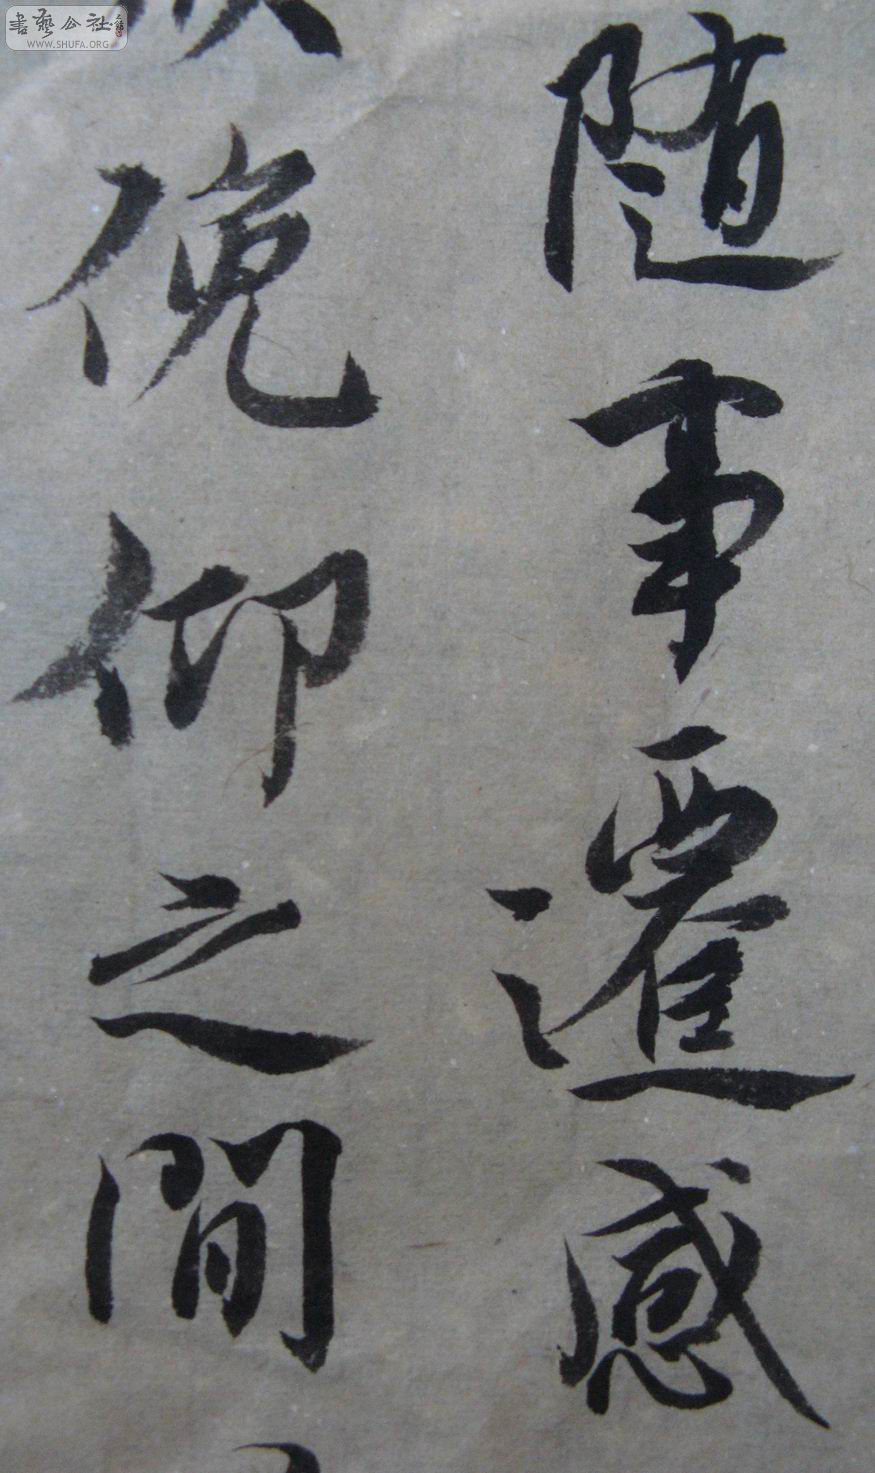 随事遷感
俛仰之間
書藝公社
WWW.SHUFA.ORG